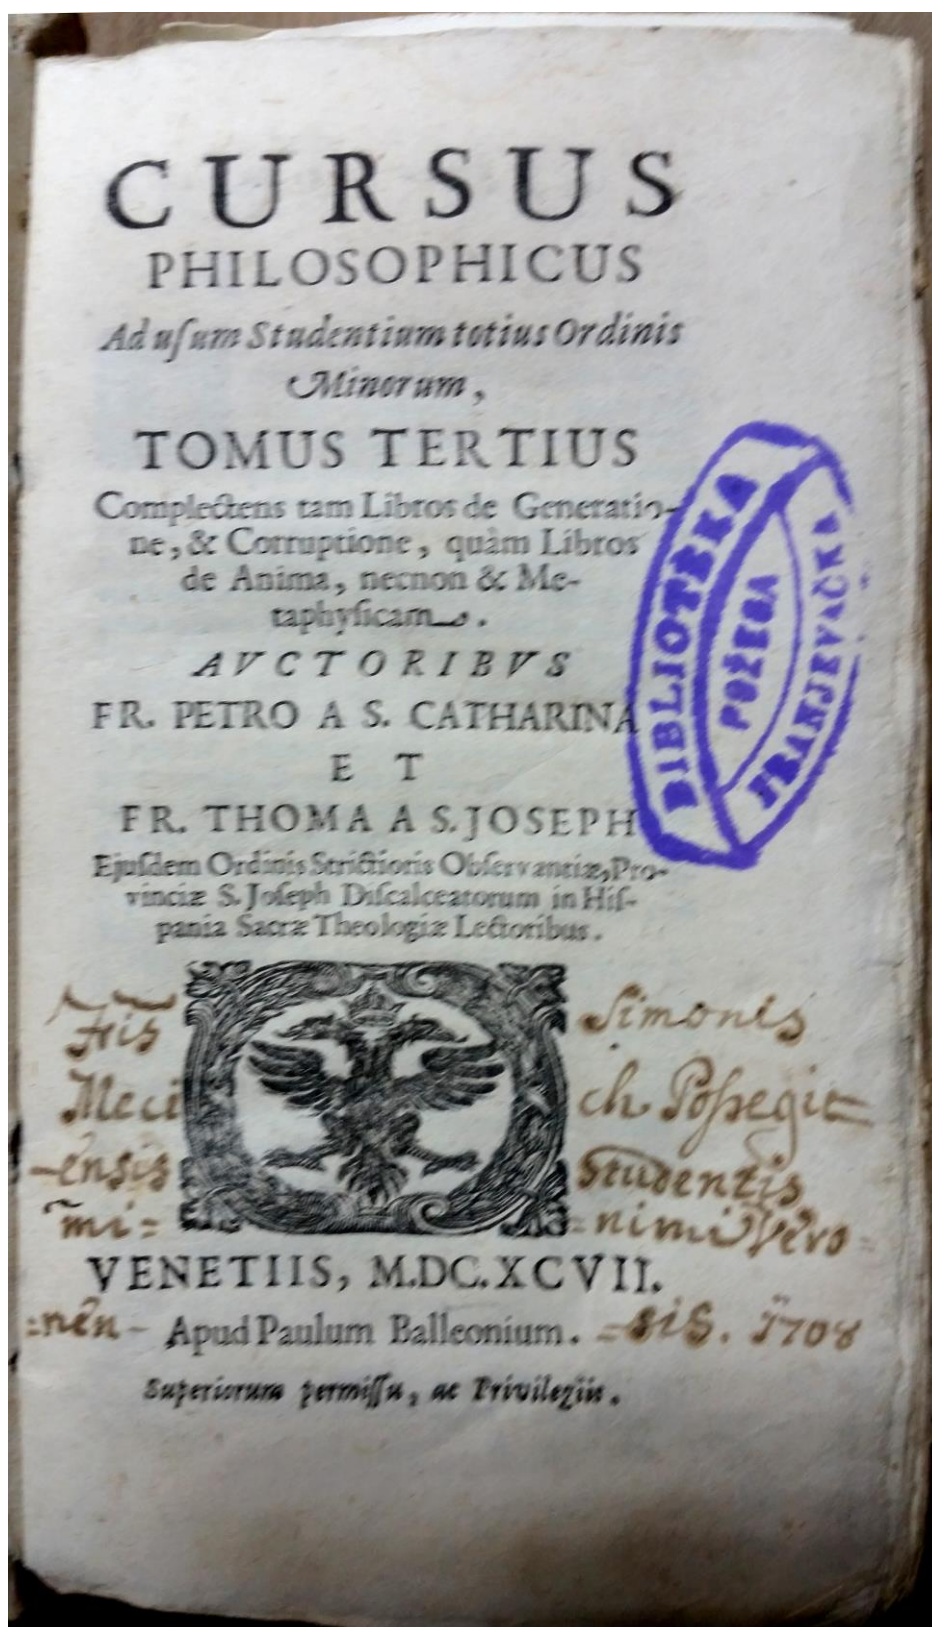 CURSUS
PHILOSOPHICUS
Ad uſum Studentium totius Ordinis
Minorum,
TOMUS TERTIUS
Complectens tam Libros de Generatio-
ne, & Corruptione, quàm Libros
de Anima, necnon & Me-
taphyſicam.
AVCTORIBVS
FR. PETRO A S. CATHARINA
ET
FR. THOMA A S. JOSEPH
Ejuſdem Ordinis Strictioris Obſervantiæ, Pro-
vinciæ S. Joſeph Diſcalceatorum in Hiſ-
pania Sacræ Theologiæ Lectoribus.
BIBLIOTEKA
POŽEGA
FRANJEVAČKA
Simonis
Meci ch Poſsegie
-ensis Studentis
mi= =nimi Vero=
VENETIIS, M.DC.XCVII.
=nên- Apud Paulum Balleonium. =sis. 1708
Superiorum permiſſu, ac Privilegiis.